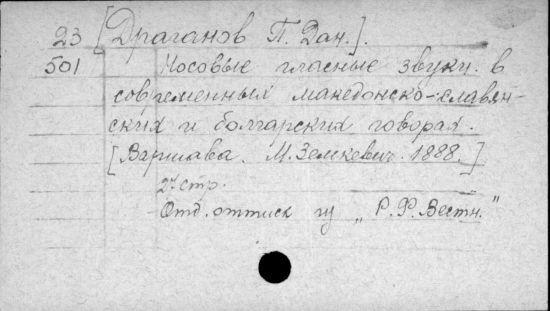 23 [Драганов П. Дан.].
501 Носовые гласные звуки в
современных македонско-славян-
ских и болгарских говорах.
[Варшава. М. Земкевич. 1888.]
27 стр.
Отд. оттиск из „Р. Ф. Вестн."